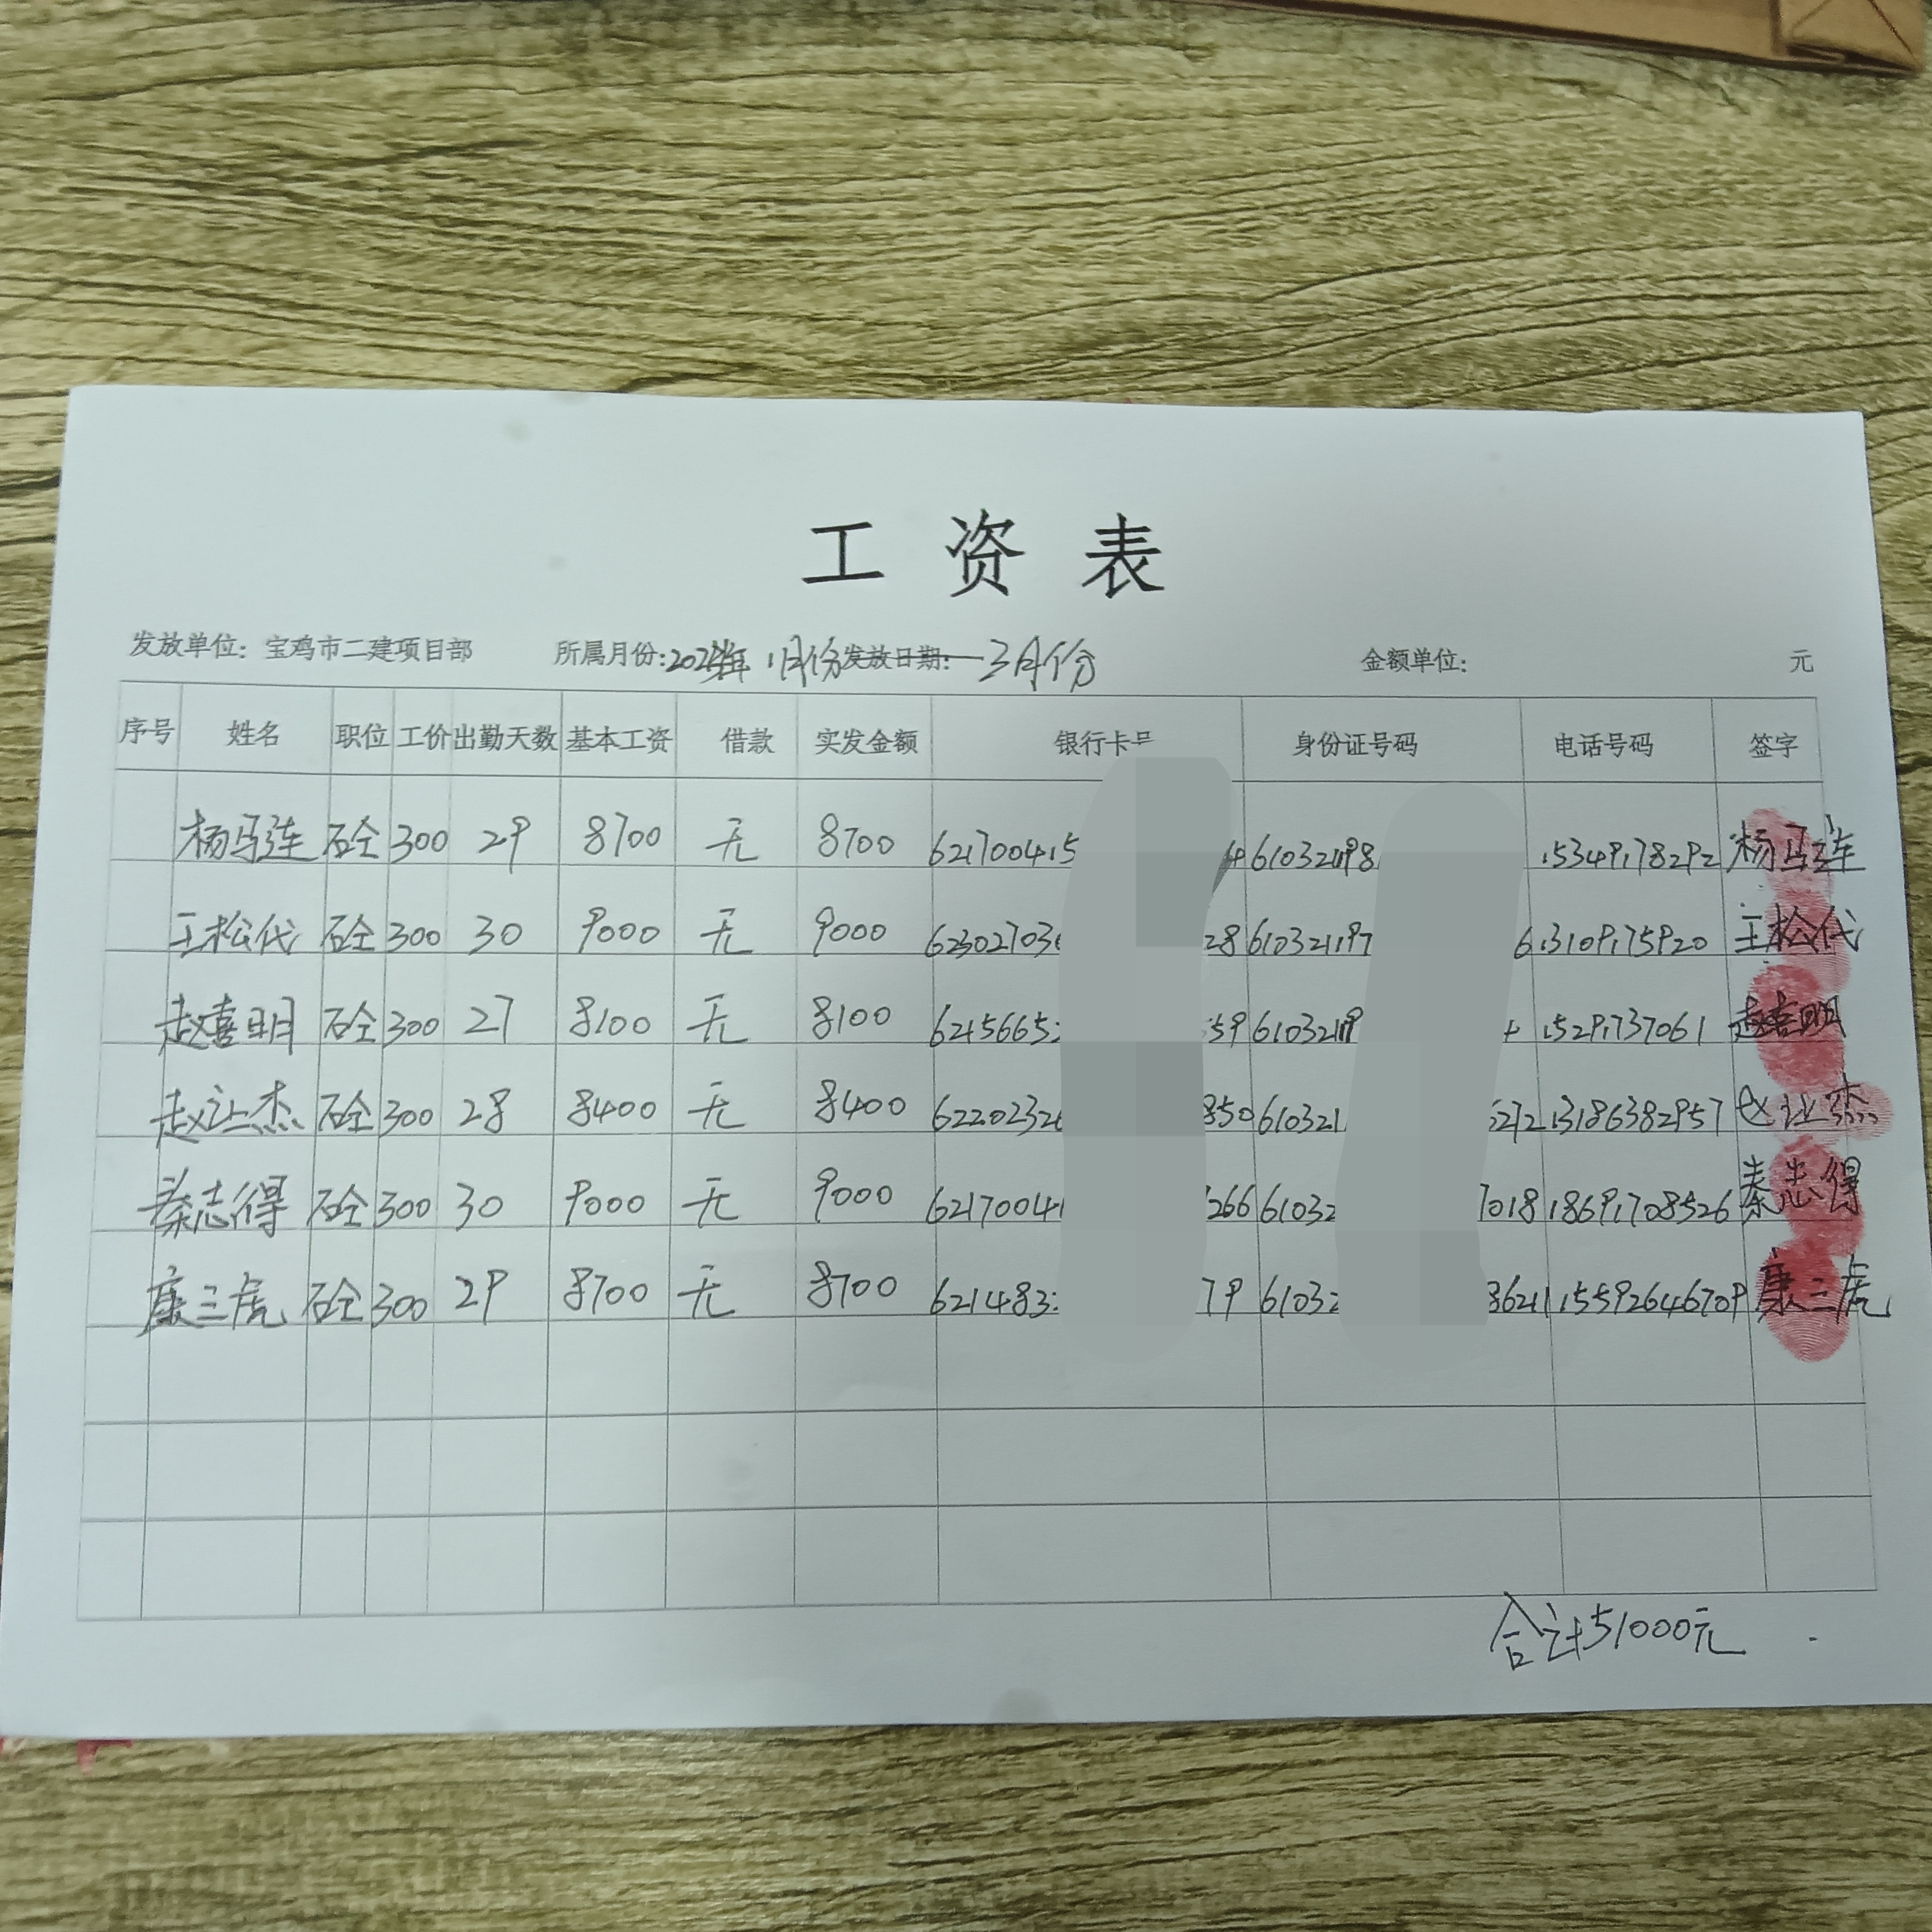 工资表
发放单位：宝鸡市二建项目部 所属月份: 1月份发放日期: 一3月份 金额单位: 元
序号 姓名 职位 工价 出勤天数 基本工资 借款 实发金额 银行卡号 身份证号码 电话号码 签字
杨马连 砼 300 29 8700 无 8700 621700415 4 610321198 15349178292 杨马连
王松代 砼 300 30 9000 无 9000 62302703 28 610321197 6 13109175920 王松代
赵喜明 砼 300 27 8100 无 8100 6215665 59 61032119 15291737061 赵喜明
赵让杰 砼 300 28 8400 无 8400 62202326 350 610321 6272 13186382957 赵让杰
秦志得 砼 300 30 9000 无 9000 62170041 266 61032 7018 18691708526 秦志得
康三虎 砼 300 29 8700 无 8700 621483 79 61032 3621 15592646709 康三虎
合计51000元